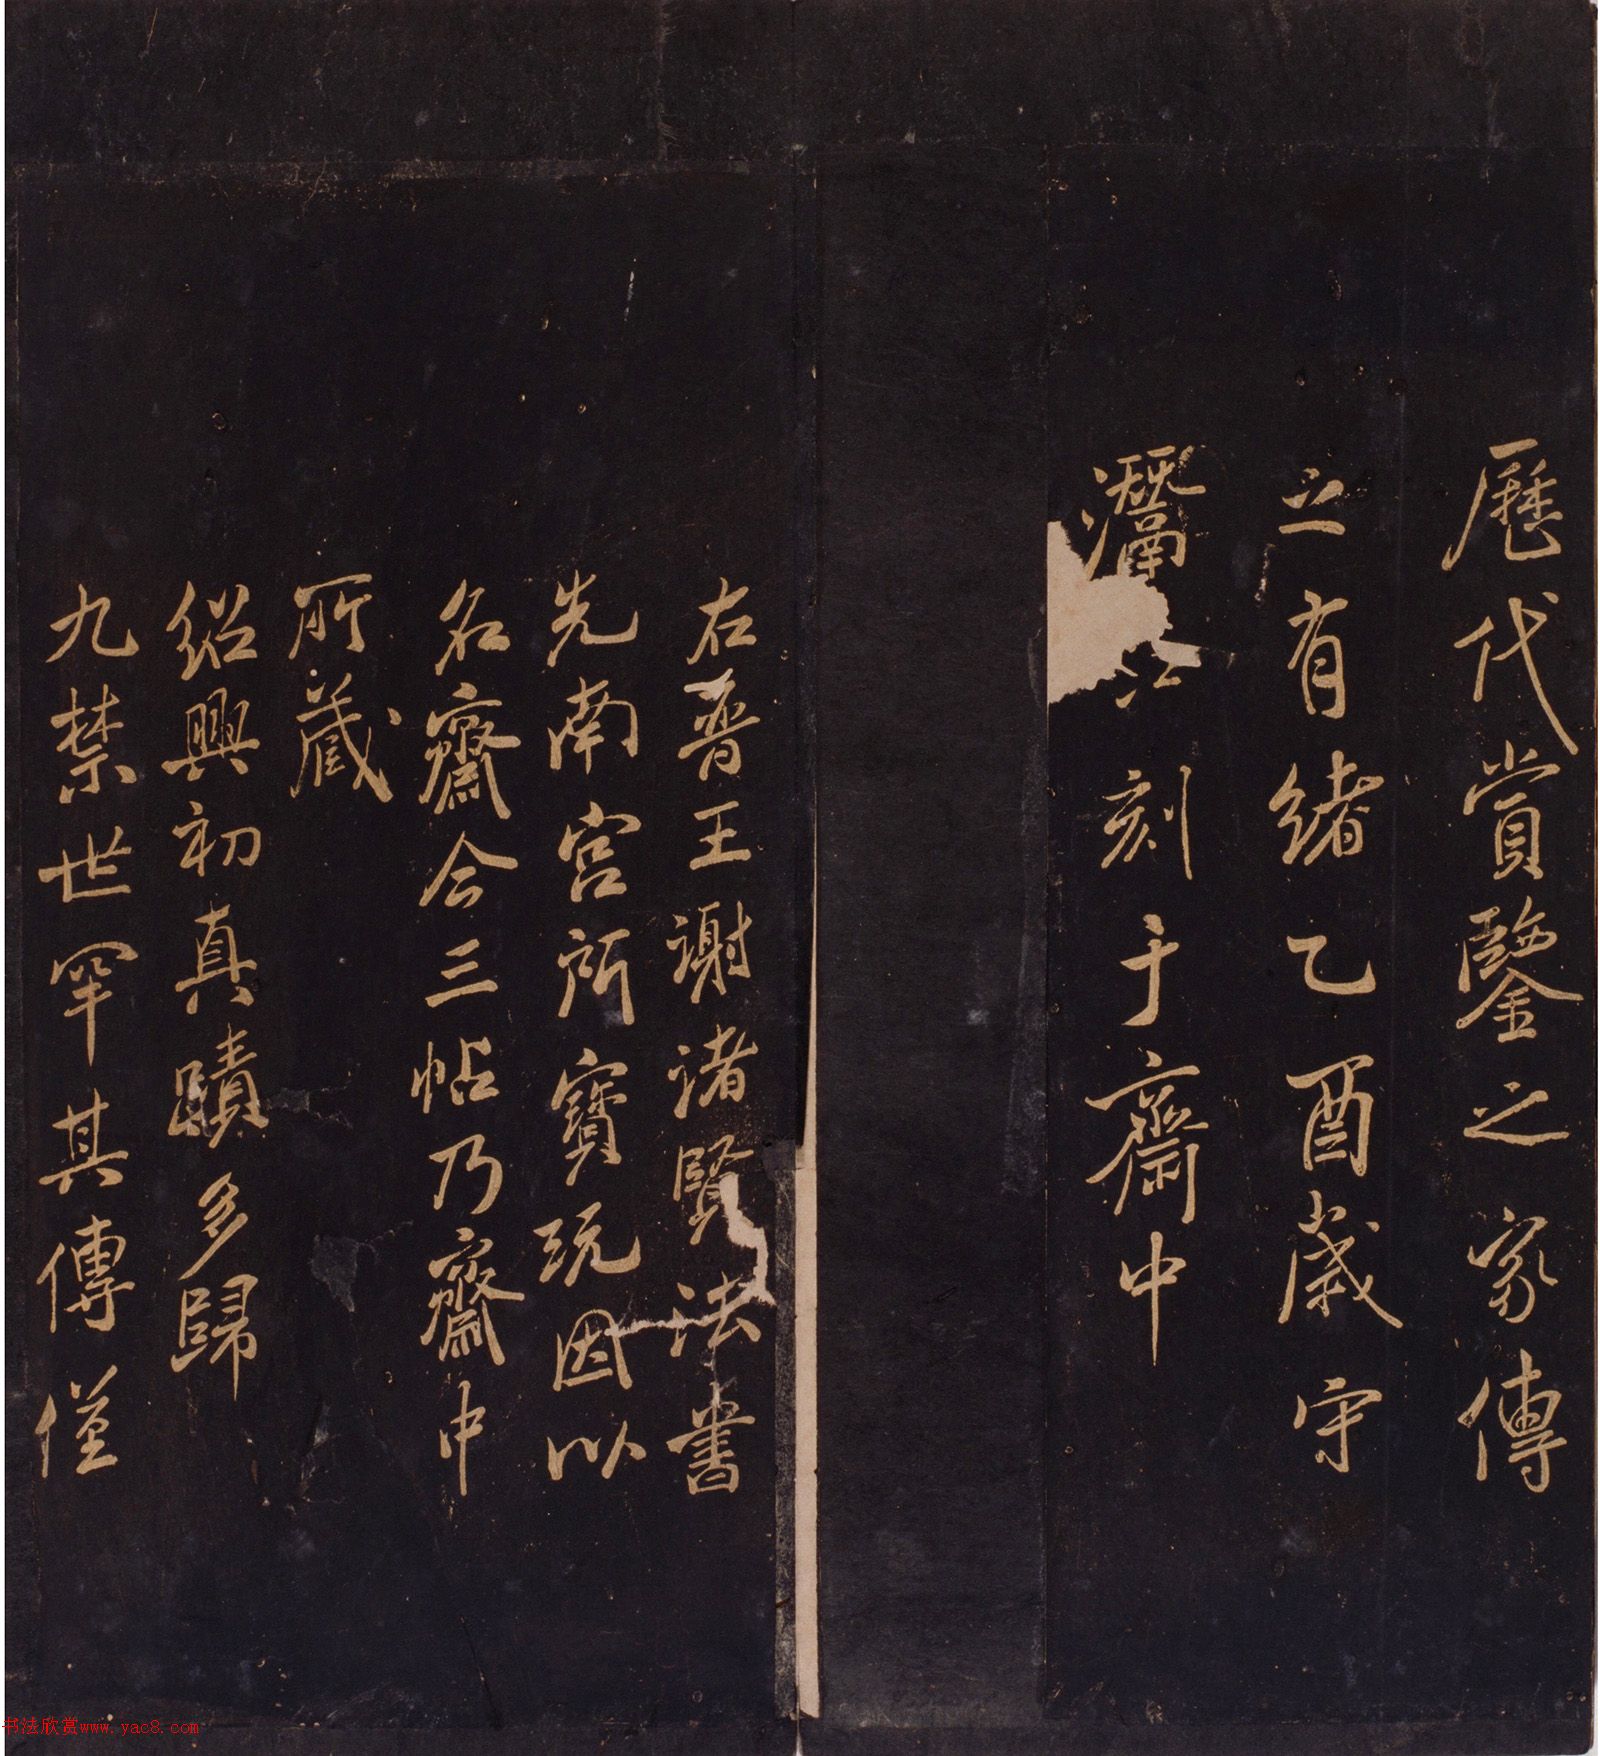 歷代賞鑒之家傳
之有緒乙酉歲守
江刻于齋中
右晉王謝諸賢法書
先南宮所寶玩因以
名齋今三帖乃齋中
所藏
紹興初真蹟多歸
九禁世罕其傳僅
书法欣赏www.yac8.com